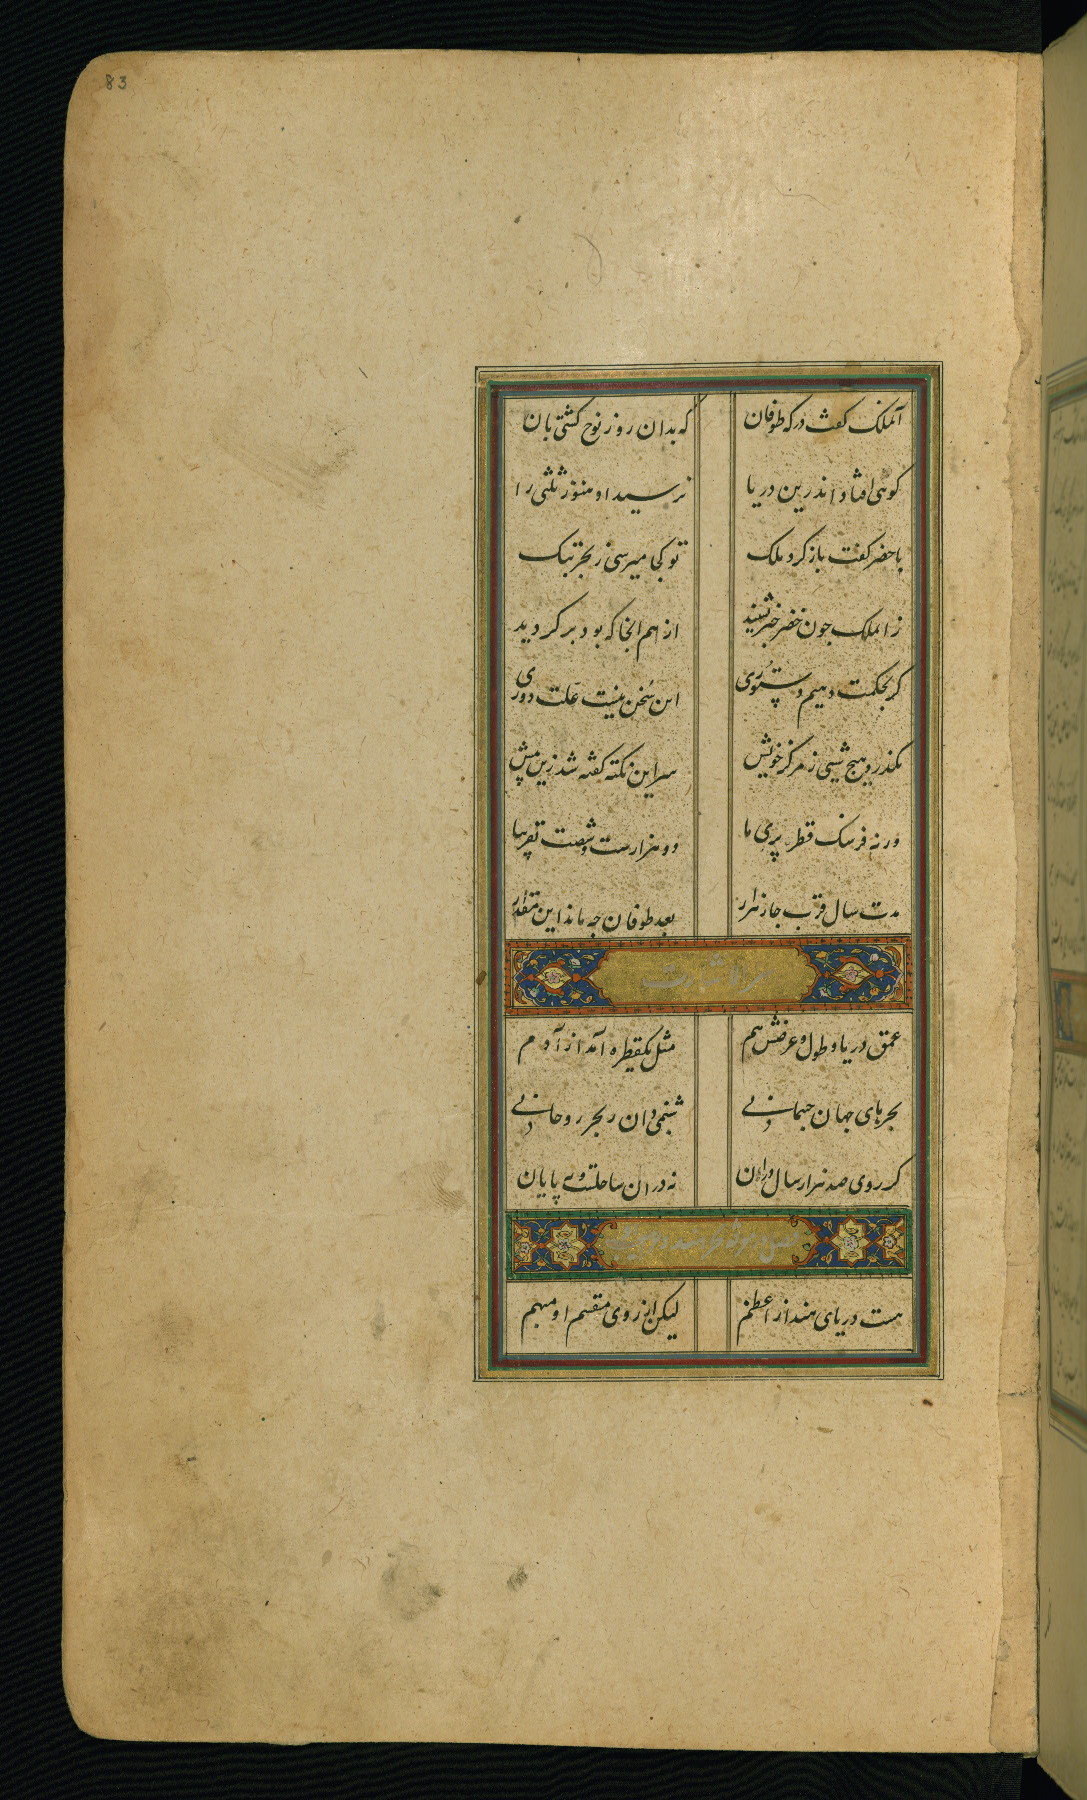 83
آنملک گفت درکه طوفان
که بدان روز نوح کشتی بان
کوهی افتاد اندرین دریا
نرسید او هنوز ثلثی را
باخضر گفت باز کرد ملک
تو کی میرسی زبحر بتک
زانملک جون خضر خبر شنید
از هم انجا که بود بر کردید
کر بحکمت دهیم دستوری
این سُخن نیست علت دوری
نکذرد هیچ شیی ز مرکز خویش
سر این نکته گفته شد زین پیش
ورنه فرسنک قطر
دو هزارست و شصت
مدت سال قرب
بعد طوفان جه ماند این مقدار
عمق دریا و طول و عرضش هم
مثل یکقطره آمد از آدم
بحرهای جهان جسمانی
شبنمی دان زبحر روحانی
کر روی صد هزار سال دران
نه دران ساحلست و پایان
هست دریای هند از اعظم
لیکن از روی مقسم او مبهم